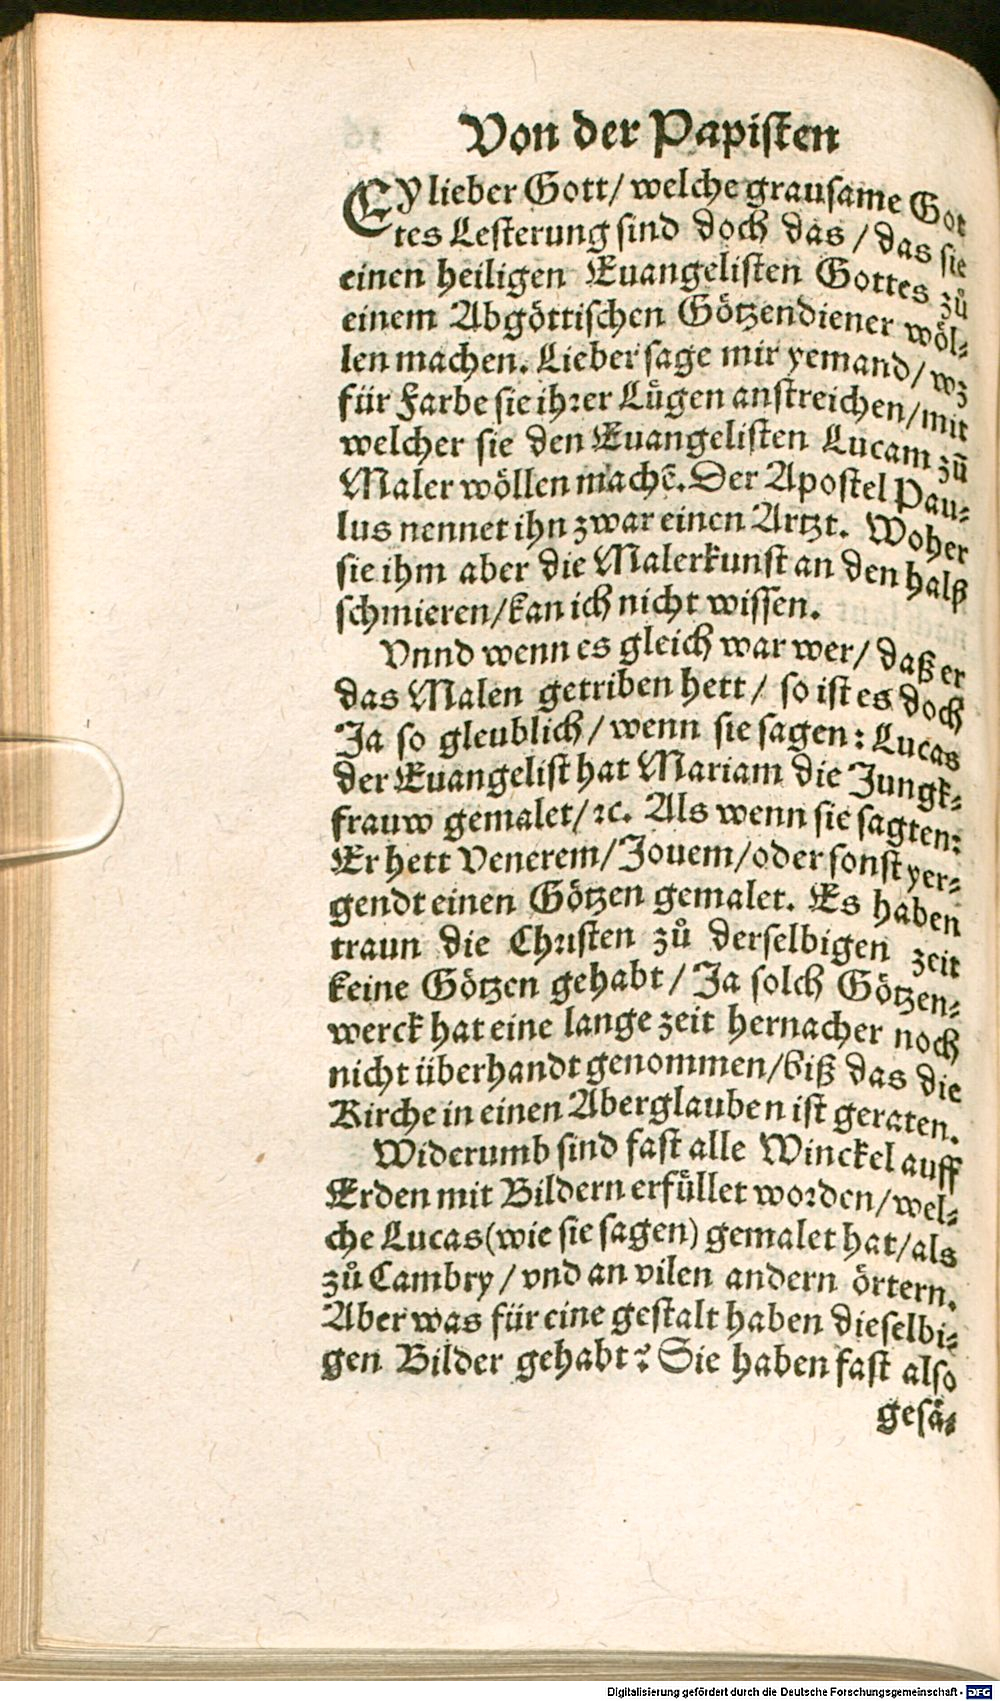 Von der Papisten
EY lieber Gott/ welche grausame Got
tes Lesterung sind doch das / das sie
einen heiligen Euangelisten Gottes zů
einem Abgöttischen Götzendiener wöl⸗
len machen. Lieber sage mir yemand/ wz
für Farbe sie ihrer Lůgen anstreichen/mit
welcher sie den Euangelisten Lucam zů
Maler wöllen machē. Der Apostel Pau⸗
lus nennet ihn zwar einen Artzt. Woher
sie ihm aber die Malerkunst an den halß
schmieren/kan ich nicht wissen.
Vnnd wenn es gleich war wer/ daß er
das Malen getriben hett/ so ist es doch
Ja so gleublich/ wenn sie sagen: Lucas
der Euangelist hat Mariam die Jungk⸗
frauw gemalet/ ꝛc. Als wenn sie sagten:
Er hett Venerem/Jouem/oder sonst yer⸗
gendt einen Götzen gemalet. Es haben
traun die Christen zů derselbigen zeit
keine Götzen gehabt/ Ja solch Götzen⸗
werck hat eine lange zeit hernacher noch
nicht überhandt genommen/biß das die
Kirche in einen Aberglauben ist geraten.
Widerumb sind fast alle Winckel auff
Erden mit Bildern erfüllet worden/wel⸗
che Lucas(wie sie sagen) gemalet hat/als
zů Cambry/ vnd an vilen andern örtern.
Aber was für eine gestalt haben dieselbi⸗
gen Bilder gehabt? Sie haben fast also
gesä⸗
Digitalisierung gefördert durch die Deutsche Forschungsgemeinschaft - DFG